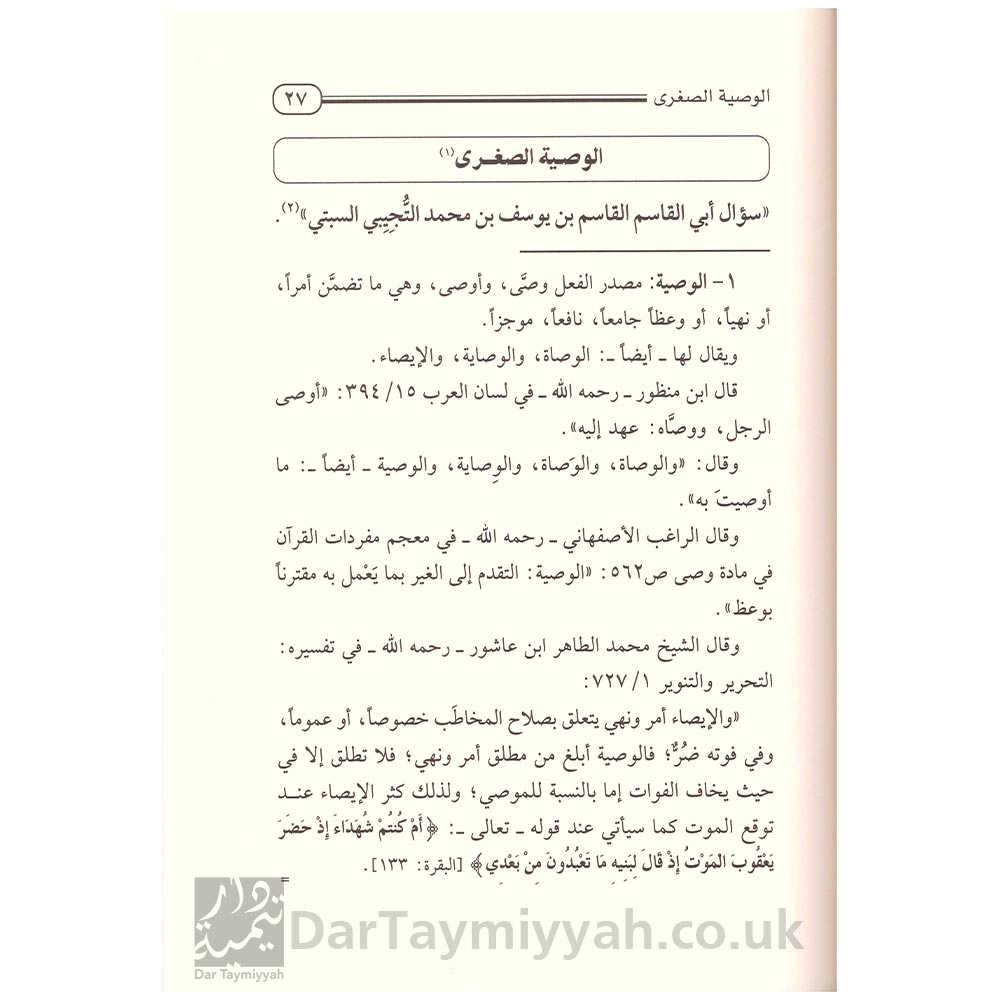 الوصية الصغرى ٢٧
الوصية الصغرى(١)
«سؤال أبي القاسم القاسم بن يوسف بن محمد التُّجِيبي السبتي»(٢).
١- الوصية: مصدر الفعل وصَّى، وأوصى، وهي ما تضمَّن أمراً،
أو نهياً، أو وعظاً جامعاً، نافعاً، موجزاً.
ويقال لها ـ أيضاً ـ: الوصاة، والوصاية، والإيصاء.
قال ابن منظور ـ رحمه الله ـ في لسان العرب ١٥/ ٣٩٤: «أوصى
الرجل، ووصَّاه: عهد إليه».
وقال: «والوصاة، والوَصاة، والوِصاية، والوصية ـ أيضاً ـ: ما
أوصيتَ به».
وقال الراغب الأصفهاني ـ رحمه الله ـ في معجم مفردات القرآن
في مادة وصى ص٥٦٢: «الوصية: التقدم إلى الغير بما يَعْمل به مقترناً
بوعظ».
وقال الشيخ محمد الطاهر ابن عاشور ـ رحمه الله ـ في تفسيره:
التحرير والتنوير ١/ ٧٢٧:
«والإيصاء أمر ونهي يتعلق بصلاح المخاطَب خصوصاً، أو عموماً،
وفي فوته ضُرٌّ؛ فالوصية أبلغ من مطلق أمر ونهي؛ فلا تطلق إلا في
حيث يخاف الفوات إما بالنسبة للموصي؛ ولذلك كثر الإيصاء عند
توقع الموت كما سيأتي عند قوله ـ تعالى ـ: ﴿أَمْ كُنتُمْ شُهَدَاءَ إِذْ حَضَرَ
يَعْقُوبَ الْمَوْتُ إِذْ قَالَ لِبَنِيهِ مَا تَعْبُدُونَ مِنْ بَعْدِي﴾ [البقرة: ١٣٣].
=
دار تيمية
Dar Taymiyyah
DarTaymiyyah.co.uk